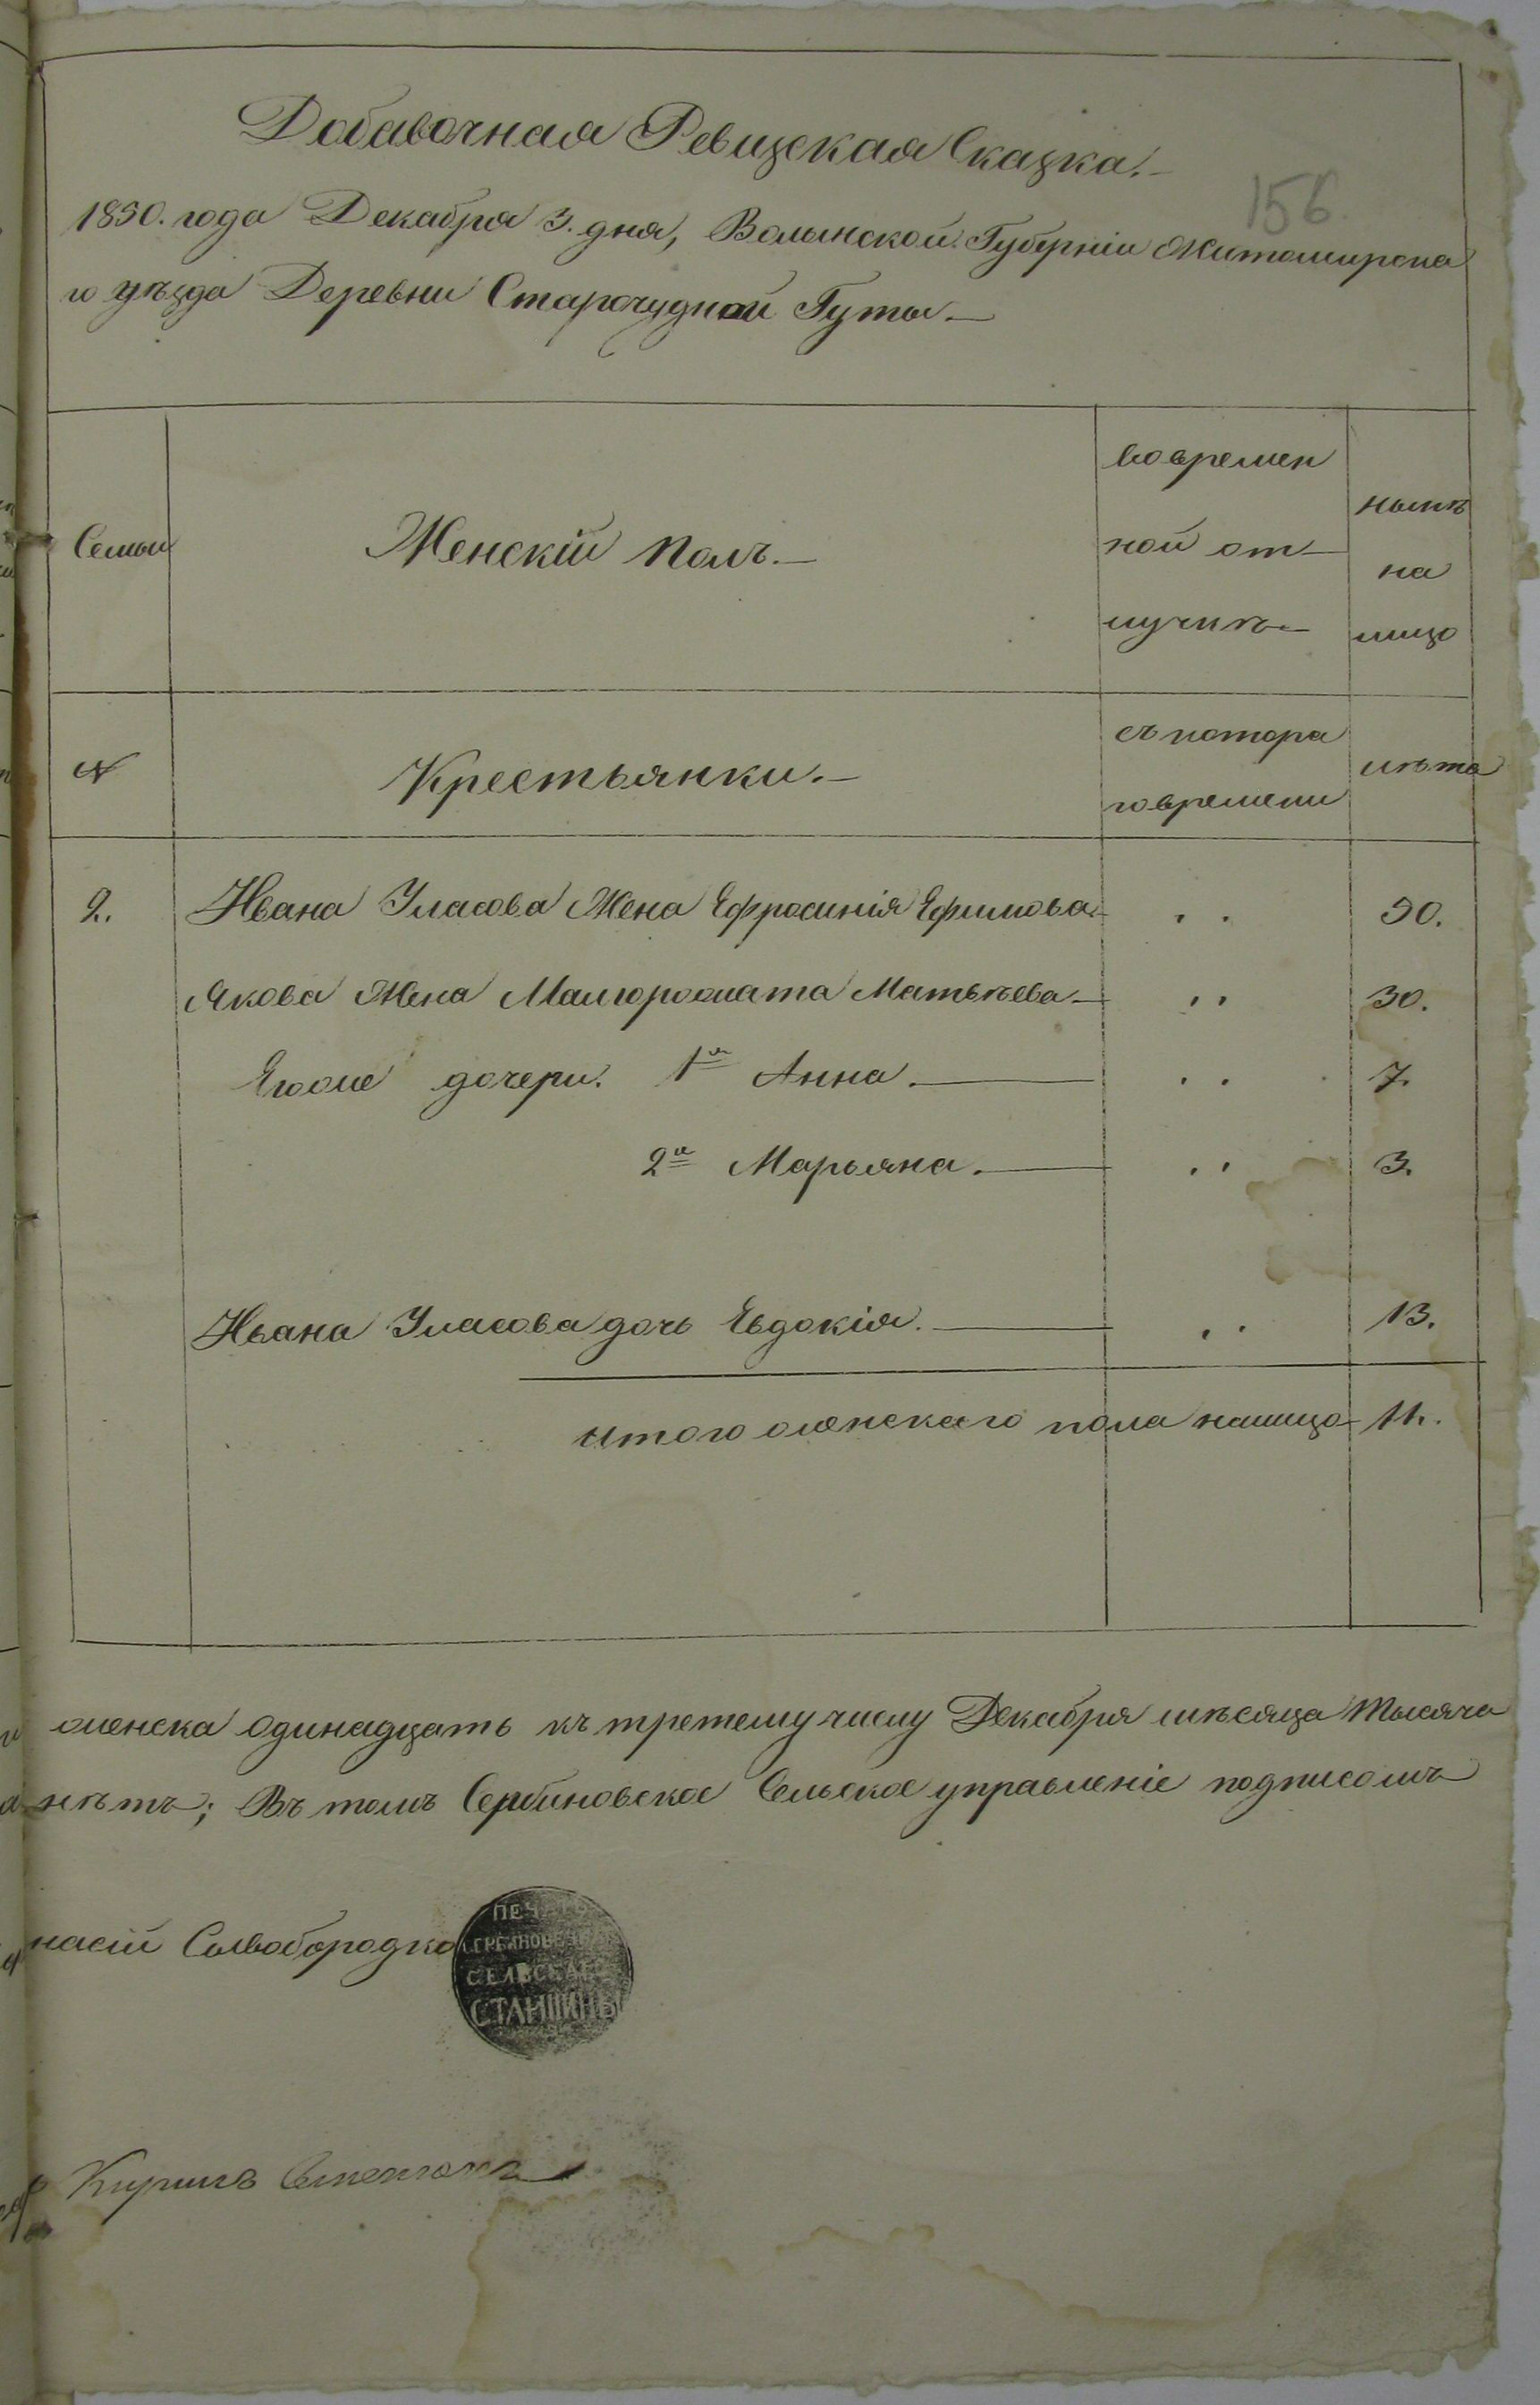 Добавочная Ревизская Сказка.
156.
1850. года Декабря 3. дня, Волынской Губерніи Житомирска
го уѣзда Деревни Старочудной Гуты
Семьи
Женскій полъ.
во времен
ной от
лучкѣ
нынѣ
на
лицо
№
Крестьянки.
съ котора
го времени
лѣта
2. Ивана Уласова Жена Ефросинія Ефимова 50.
Якова Жена Малгоржата Матвѣева 30.
Егоже дочери. 1я Анна. 7.
2я Марьяна. 3.
Ивана Уласова дочь Евдокія. 13.
Итого женскаго пола налицо 11.
женска одинадцать къ третему числу Декабря мѣсяца тысяча
нѣтъ; Въ томъ Сербиновское Сельское управленіе подписомъ
насій Сывобородко
ПЕЧАТЬ
СЕРБИНОВСКОЙ
СЕЛЬСКАГО
СТАРШИНЫ
Кирилъ